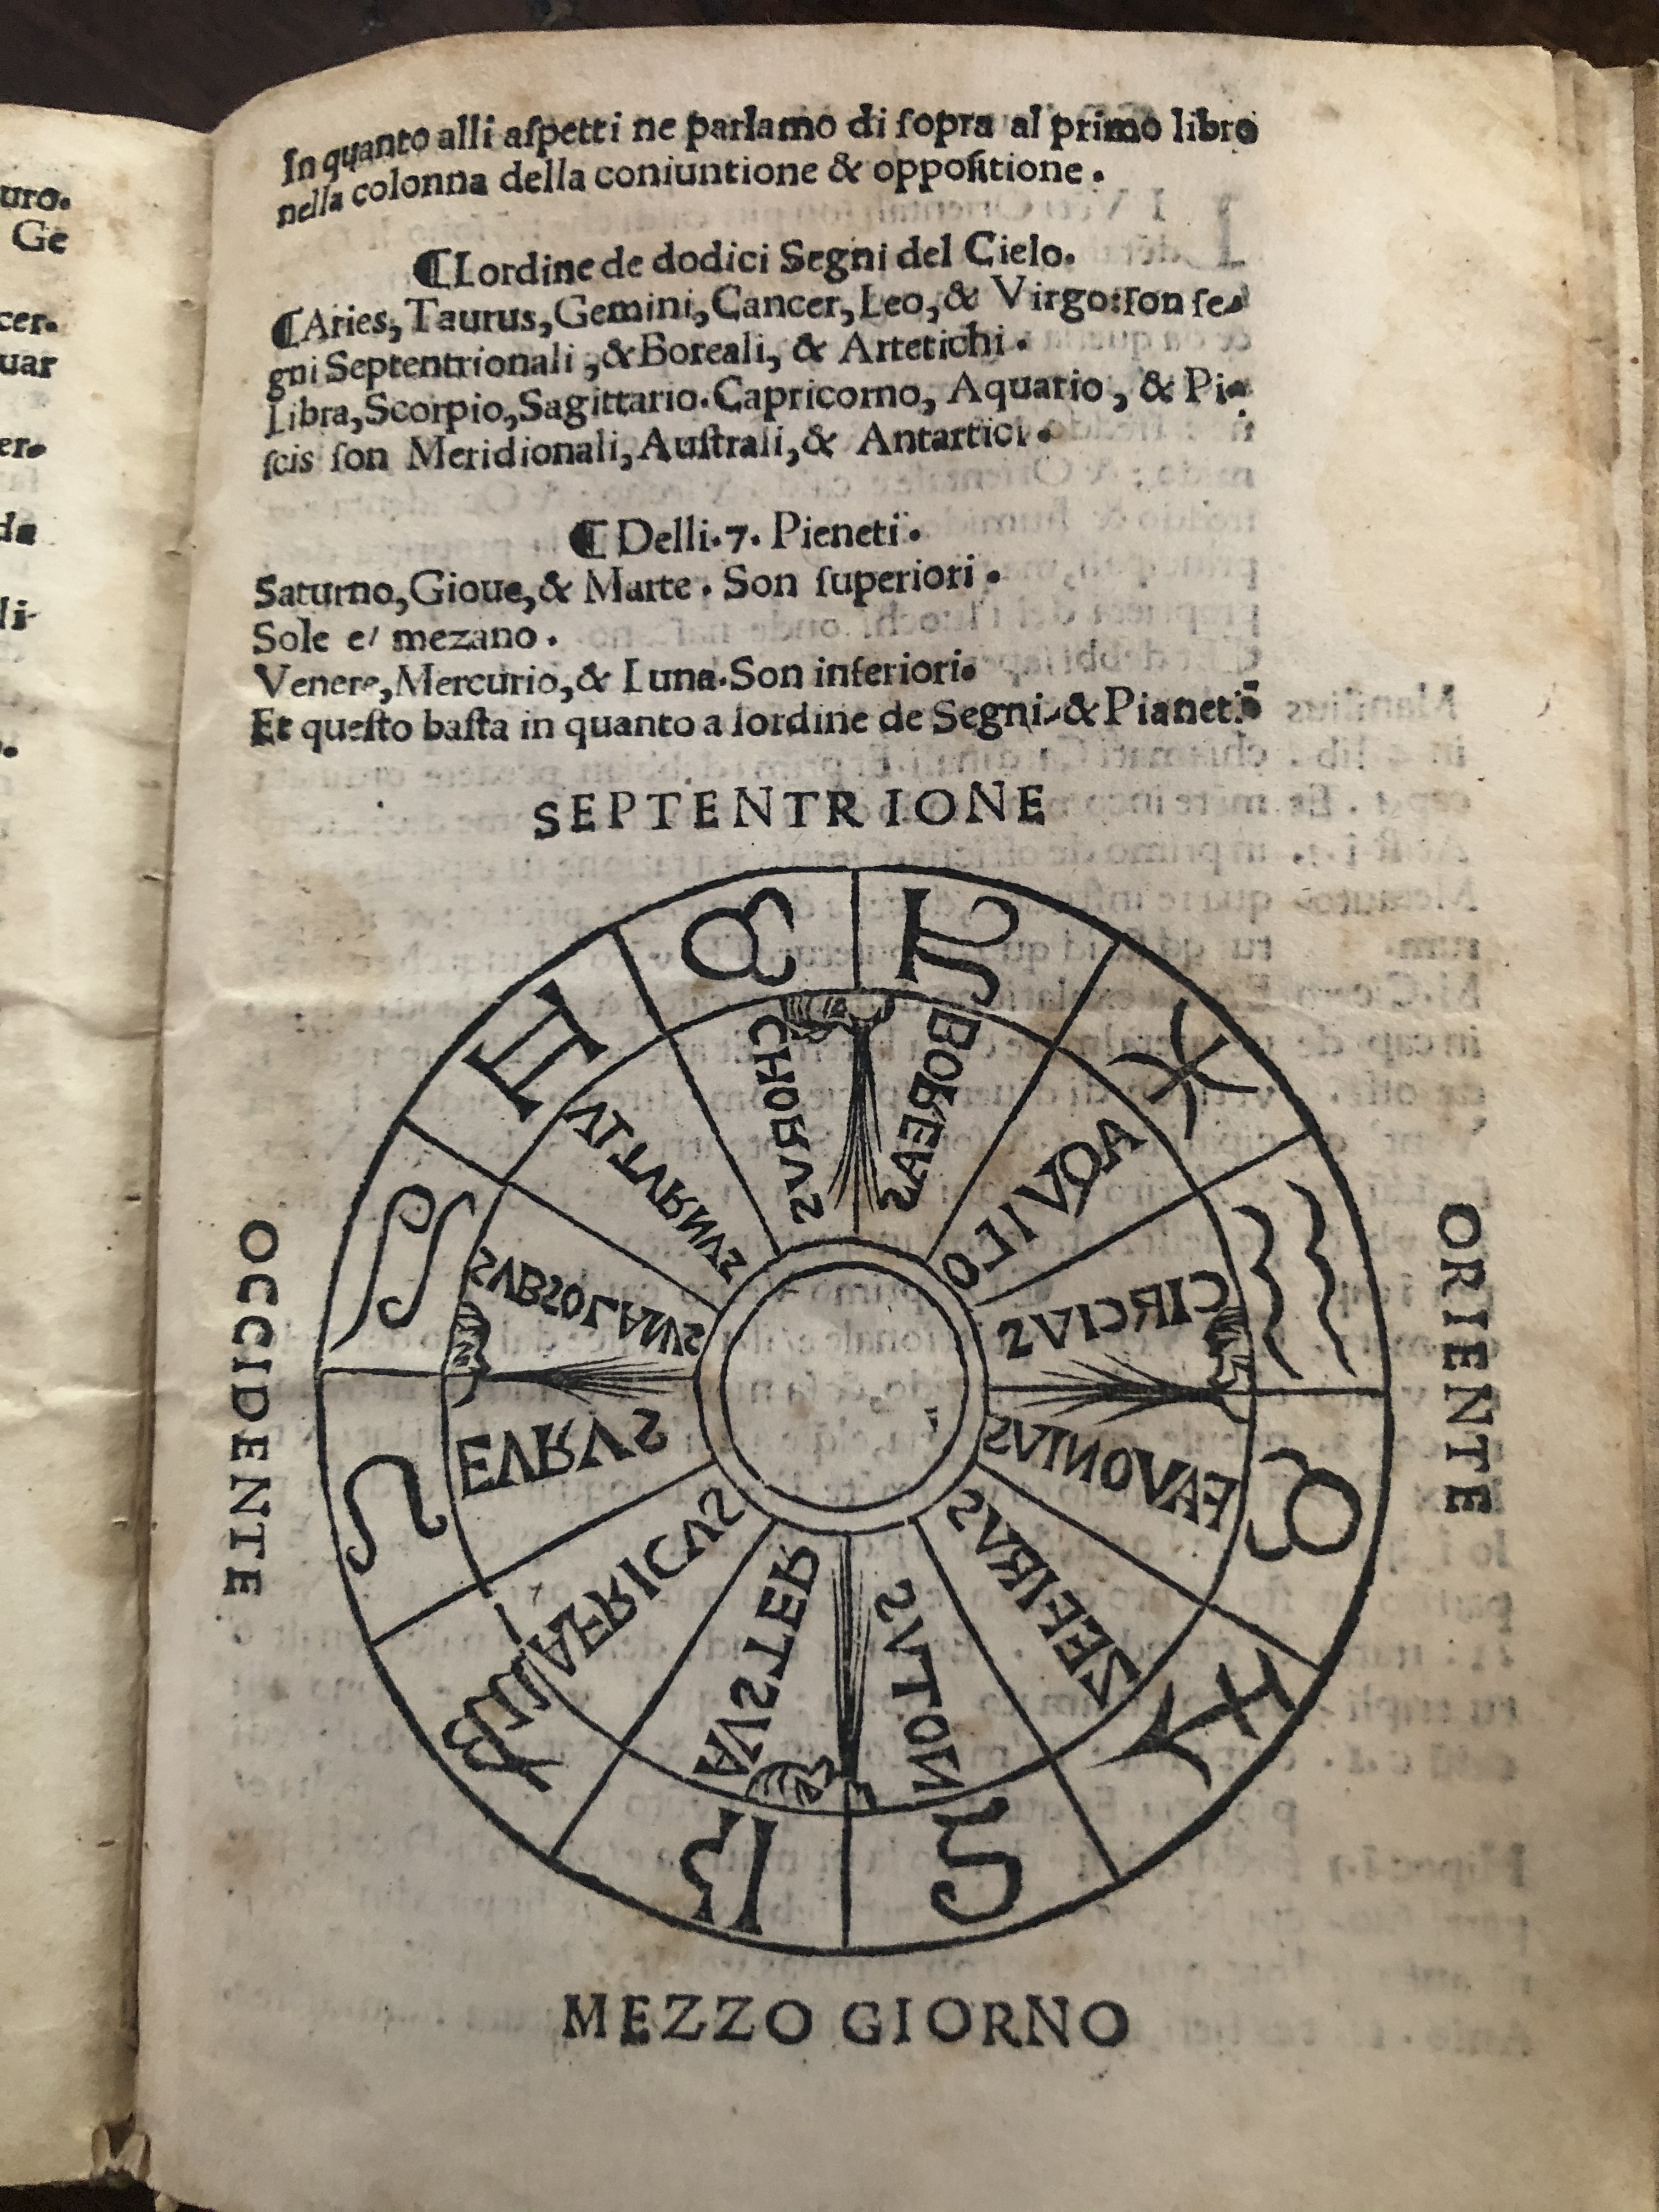 uro.
Ge
cer.
uar
er.
da
li-
In quanto alli aſpetti ne parlamo di ſopra al primo libro
nella colonna della coniuntione & oppoſitione.
¶Lordine de dodici Segni del Cielo.
¶Aries, Taurus, Gemini, Cancer, Leo, & Virgo: ſon ſe-
gni Septentrionali, & Boreali, & Artetichi.
Libra, Scorpio, Sagittario. Capricorno, Aquario, & Pi-
ſcis ſon Meridionali, Auſtrali, & Antartici.
¶ Delli. 7. Pieneti.
Saturno, Gioue, & Marte. Son ſuperiori.
Sole e/ mezano.
Venere, Mercurio, & Luna. Son inferiori.
Et queſto baſta in quanto a lordine de Segni. & Pianeti
SEPTENTRIONE
CHORVS
BOREAS
AQVILO
CIRCIVS
FAVONIVS
ZEFIRVS
NOTVS
AVSTER
AFRICVS
EVRVS
SVBSOLANVS
VVLTVRNVS
OCCIDENTE
ORIENTE
MEZZO GIORNO